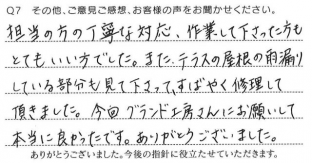 Q7 その他、ご意見ご感想、お客様の声をお聞かせください。
担当の方の丁寧な対応、作業して下さった方も
とてもいい方でした。また、テラスの屋根の雨漏り
している部分も見て下さって、すばやく修理して
頂きました。今回グランド工房さんにお願いして
本当に良かったです。ありがとうございました。
ありがとうございました。今後の指針に役立たせていただきます。